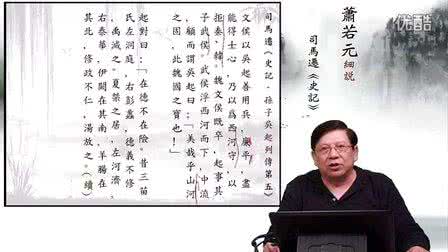 蕭若元細說
司馬遷《史記》
司馬遷《史記‧孫子吳起列傳第五》
文侯以吳起善用兵,廉平,盡
能得士心,乃以為西河守,以
拒秦、韓。魏文侯既卒,起事其
子武侯。武侯浮西河而下,中流,
顧而謂吳起曰:「美哉乎山河
之固,此魏國之寶也!」
起對曰:「在德不在險。昔三苗
氏左洞庭,右彭蠡,德義不修,
禹滅之。夏桀之居,左河濟,
右泰華,伊闕在其南,羊腸在
其北,修政不仁,湯放之。(續)
YOU优酷